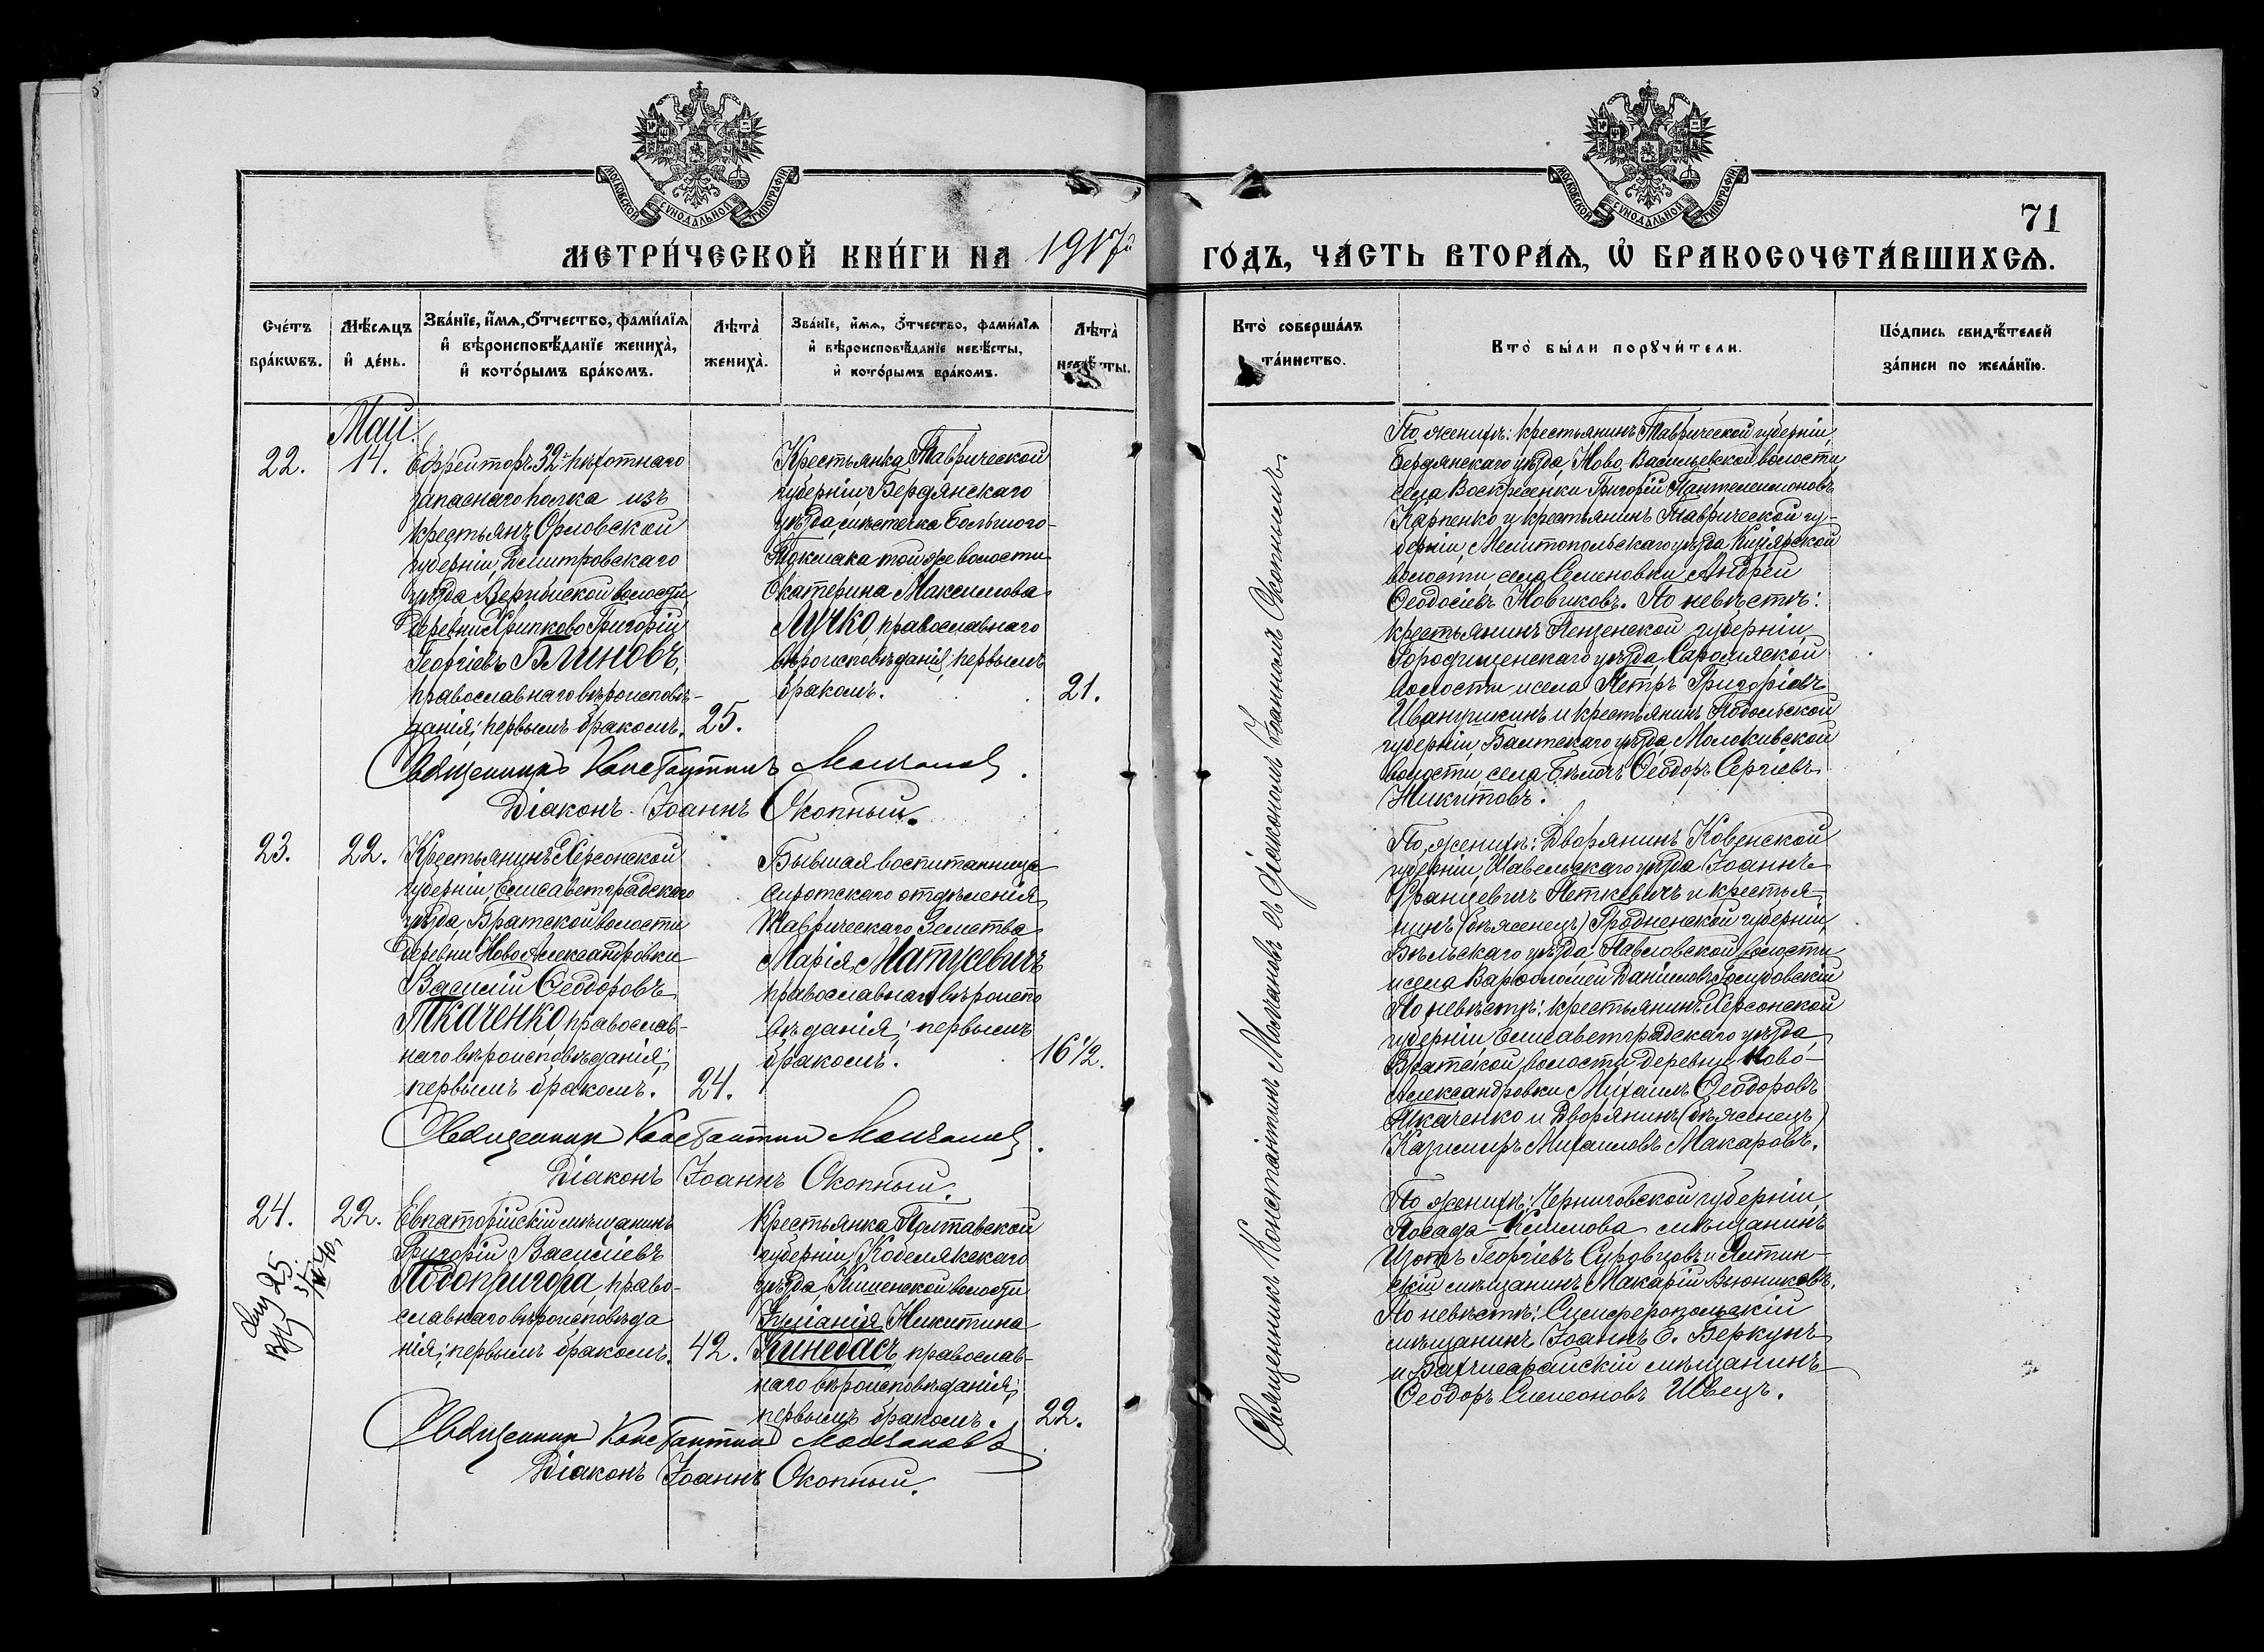 МОСКОВСКОЙ СѴНОДАЛЬНОЙ ТИПОГРАФІИ
МЕТРИ́ЧЕСКОЙ КНИ́ГИ НА 1917й
Сче́тъ бра́кѡвъ.
Мѣ́сяцъ и҆ де́нь.
Зва́нїе, и҆́мѧ, ѻ҆́тчество, фами́лїѧ
и҆ вѣроисповѣ́данїе жениха̀,
и҆ кото́рымъ бра́комъ.
Лѣта̀ жениха̀.
Зва́нїе, и҆́мѧ, ѻ҆́тчество, фами́лїѧ
и҆ вѣроисповѣ́данїе невѣ́сты,
и҆ кото́рымъ бра́комъ.
Лѣта̀ невѣ́сты.
Май
22.
14.
Ефрейторъ 32го пѣхотнаго
запаснаго полка изъ
крестьянъ Орловской
губерніи, Дмитровскаго
уѣзда, Вербнской волости,
деревни Хрипково Григорій
Георгіевъ Блиновъ,
православнаго вѣроисповѣ-
данія; первымъ бракомъ.
25.
Крестьянка Таврической
губерніи Бердянскаго
уѣзда, мѣстечка Большого-
Токмака той же волости
Екатерина Максимова
Лучко православнаго
вѣроисповѣданія; первымъ
бракомъ.
21.
Священникъ Константинъ Молчановъ.
Діаконъ Іоаннъ Окопный.
23.
22.
Крестьянинъ Херсонской
губерніи, Елисаветградскаго
уѣзда, Братской волости
деревни Ново Александровки
Василій Ѳеодоровъ
Ткаченко православ-
наго вѣроисповѣданія;
первымъ бракомъ.
24.
Бывшая воспитанница
сиротскаго отдѣленія
Таврическаго Земства
Марія Матусевичъ
православнаго вѣроиспо
вѣданія; первымъ
бракомъ.
16 1/2.
Священникъ Константинъ Молчановъ.
Діаконъ Іоаннъ Окопный.
24.
22.
Евпаторійскій мѣщанинъ
Григорій Василіевъ
Подопригора, право-
славнаго вѣроисповѣда
нія; первымъ бракомъ.
42.
Крестьянка Полтавской
губерніи, Кобелякскаго
уѣзда, Кишенской волости
Іуліанія Никитина
Кинебасъ православ-
наго вѣроисповѣданія;
первымъ бракомъ.
22.
Священникъ Константинъ Молчановъ
Діаконъ Іоаннъ Окопный.
МОСКОВСКОЙ СѴНОДАЛЬНОЙ ТИПОГРАФІИ
71
ГО́ДЪ, ЧА́СТЬ ВТОРА́Ѧ, Ѡ҆ БРАКОСОЧЕТА́ВШИХСѦ.
Кто̀ соверша́лъ та́инство.
Кто̀ бы́ли порꙋчи́тели.
По́дпись свидѣ́телей за́писи по жела́нїю.
Священникъ Константинъ Молчановъ съ діакономъ Іоанномъ Окопнымъ.
По женихѣ: крестьянинъ Таврической губерніи,
Бердянскаго уѣзда, Ново-Васильевской волости
села Воскресенки Григорій Пантелеимоновъ
Карпенко и крестьянинъ Таврической гу-
берніи, Мелитопольскаго уѣзда, Кизіярской
волости, села Семеновки Андрей
Ѳеодосіевъ Новиковъ. По невѣстѣ:
крестьянинъ Пензенской губерніи
Городищенскаго уѣзда, Саромяской
волости и села Петръ Григоріевъ
Иванушкинъ и крестьянинъ Подольской
губерніи, Балтскаго уѣзда, Молокишской
волости, села Бѣлочъ Ѳеодоръ Сергіевъ
Никитовъ.
По женихѣ: Дворянинъ Ковенской
губерніи, Шавельскаго уѣзда Іоаннъ
Францевичъ Петкевичъ и крестья-
нинъ (бѣженецъ) Гродненской губерніи,
Бѣльскаго уѣзда, Павловской волости
и села Варѳоломей Даніиловъ Голубовскій
По невѣстѣ: крестьянинъ Херсонской
губерніи Елисаветградскаго уѣзда,
Братской волости деревни Ново-
Александровки Михаилъ Ѳеодоровъ
Ткаченко и Дворянинъ (бѣженецъ)
Казимиръ Михаиловъ Макаровъ.
По женихѣ: Черниговской губерніи,
Посада-Климова мѣщанинъ
Изотъ Георгіевъ Суровцовъ и Ялтин-
скій мѣщанинъ Макарій Вьюниковъ.
По невѣстѣ: Симферопольскій
мѣщанинъ Іоаннъ Е. Беркунъ
и Бахчисарайскій мѣщанинъ
Ѳеодоръ Симеоновъ Швецъ.